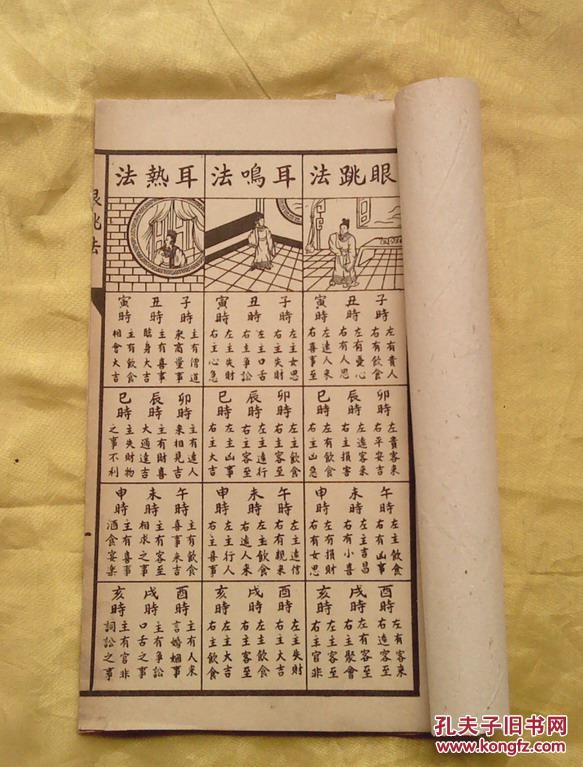 眼跳法
子時
左有貴人
右有飲食
丑時
左有憂心
右有人思
寅時
左遠人來
右喜事至
卯時
左貴客來
右平安吉
辰時
左遠客來
右主損害
巳時
左有飲食
右主凶急
午時
左主飲食
右有凶事
未時
左主吉昌
右有小喜
申時
左有損財
右有女思
酉時
左有客來
右遠客至
戌時
左有客至
右主聚會
亥時
左主客至
右主官非
耳鳴法
子時
左主女思
右主失財
丑時
左主口舌
右主爭訟
寅時
左主失財
右主心急
卯時
左主飲食
右主客至
辰時
左主遠行
右主客至
巳時
左主凶事
右主大吉
午時
左主遠信
右有親來
未時
左主飲食
右遠人來
申時
左主行人
右主喜事
酉時
左主失財
右主大吉
戌時
左主飲食
右主客至
亥時
左主大吉
右主飲食
耳熱法
子時
主有僧道
來商量事
丑時
主有喜事
臨身大吉
寅時
主有飲食
相會大吉
卯時
主有遠人
來相見吉
辰時
主有財喜
大通達吉
巳時
主失財物
之事不利
午時
主有飲食
喜事來吉
未時
主有客至
相求之事
申時
主有喜事
酒食宴樂
酉時
主有人來
言婚姻事
戌時
主有爭訟
口舌之事
亥時
主有官非
詞訟之事
眼跳法
孔夫子旧书网
www.kongfz.com